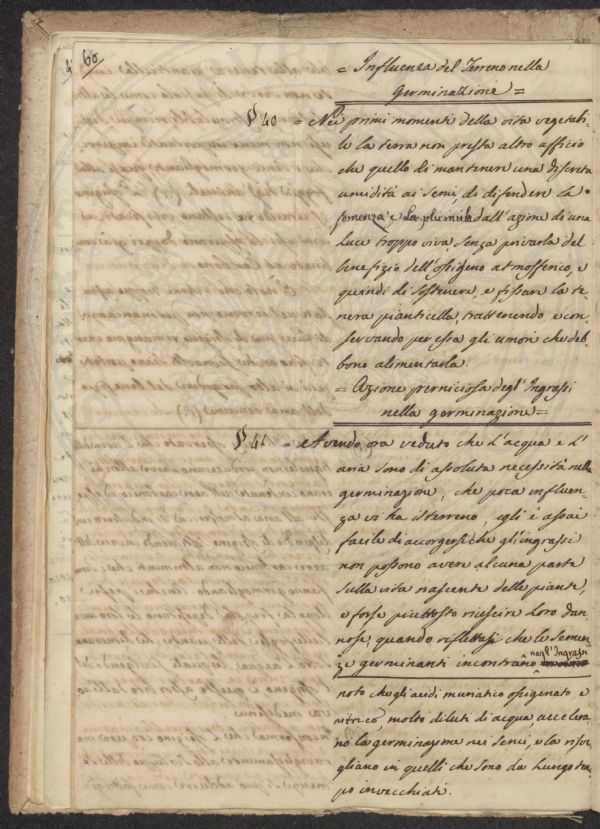 60
= Influenza del Terreno nella
Germinazione =
§ 40 = Nei primi momenti della vita vegetabi-
le la terra non presta altro ufficio
che quello di mantenere una discreta
umidità ai semi, di difendere la
semenza e La plumula dall'azione di una
Luce troppo viva senza privarla del
benefizio dell'ossigeno atmosferico, e
quindi di sostenere, e fissare la te-
nera pianticella, trattenendo e con
servando per essa gli umori che deb
bono alimentarla.
= Azione perniciosa degl'Ingrassi
nella germinazione =
§ 41 = Avendo ora veduto che L'acqua e L'
aria sono di assoluta necessità nella
germinazione, che poca influen-
za vi ha il terreno, egli è assai
facile di accorgersi che gl'ingrassi
non possono avere alcuna parte
sulla vita nascente delle piante,
e forse piuttosto riescire Loro dan-
nose, quando riflettasi che le Semen
ze germinanti incontrano negl'Ingrassi
noto che gli acidi muriatico ossigenato e
nitrico, molto diluti di acqua accelera
no la germinazione nei semi, e la risve
gliano in quelli che sono da Lungo tem
po invecchiati.